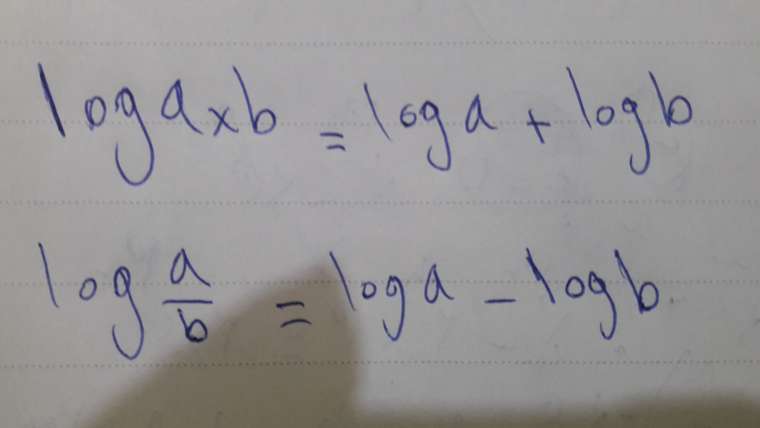 log a×b = log a + log b
log a/b = log a − log b